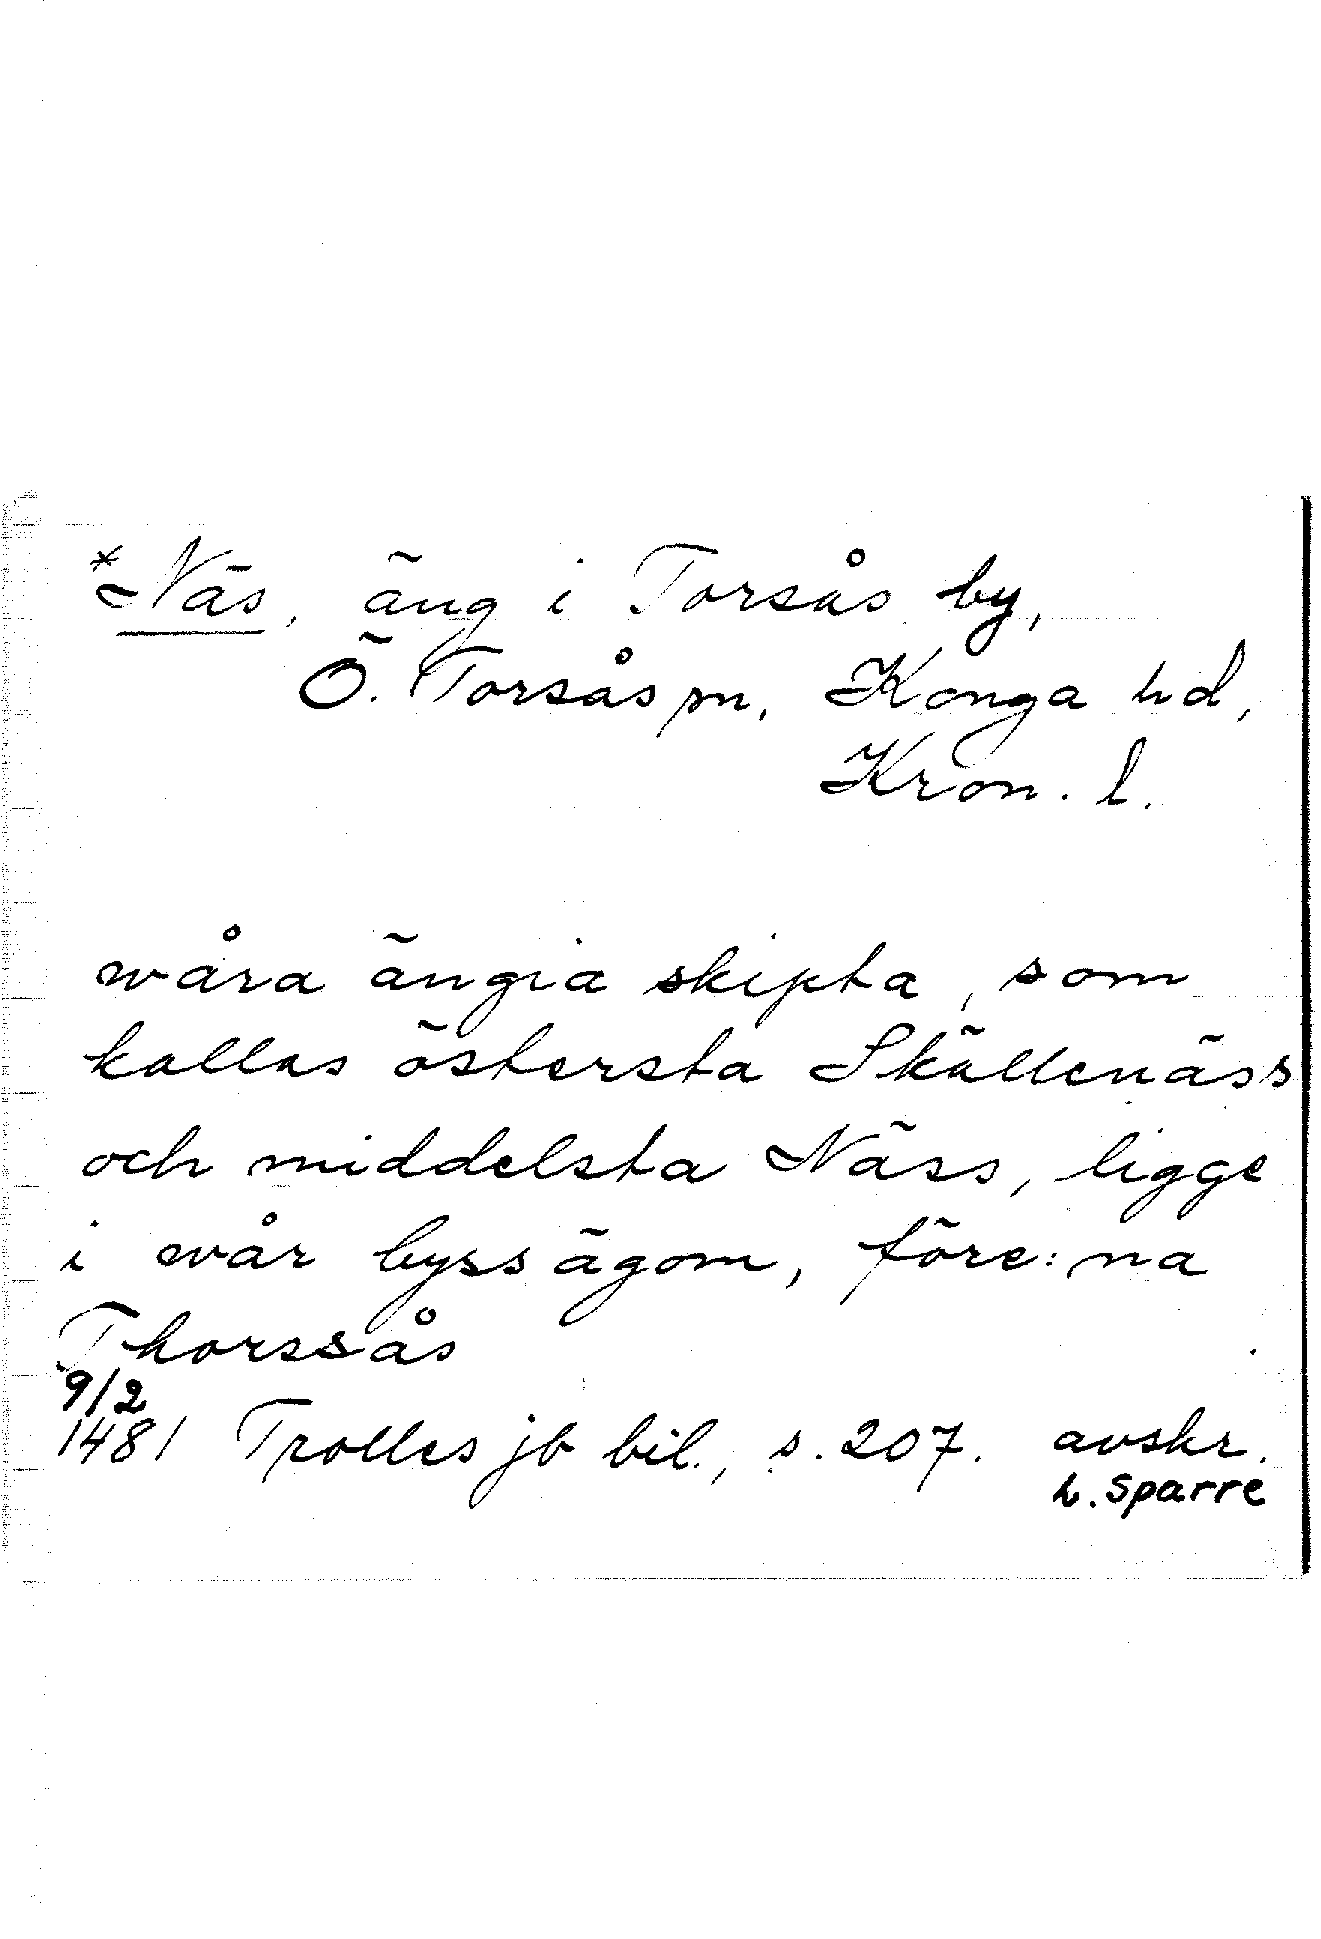 *Näs, äng i Torsås by,
Ö. Torsås sn, Konga hd,
Kron. l.
wåra ängia skipta, som
kallas östersta Skällenäss
och middelsta Näss, ligge
i wår byss ägom, före:na
Thorssås
9/2
1481 Trolles jb bil., s. 207. avskr.
L. Sparre